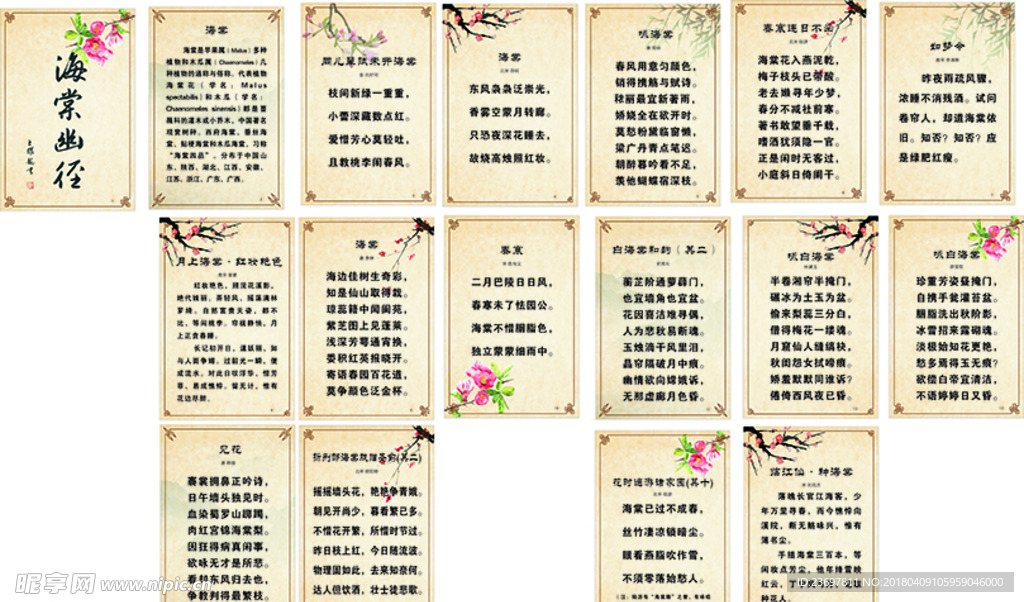 海棠幽径
海棠
海棠是苹果属（Malus）多种
植物和木瓜属（Chaenomeles）几
种植物的通称与俗称。代表植物
海棠花（学名：Malus
spectabilis）和木瓜（学名：
Chaenomeles sinensis）都是蔷
薇科的灌木或小乔木，中国著名
观赏树种。西府海棠、垂丝海
棠、贴梗海棠和木瓜海棠，习称
“海棠四品”。分布于中国山
东、陕西、湖北、江西、安徽、
江苏、浙江、广东、广西。
同儿辈赋未开海棠
枝间新绿一重重，
小蕾深藏数点红。
爱惜芳心莫轻吐，
且教桃李闹春风。
海棠
东风袅袅泛崇光，
香雾空蒙月转廊。
只恐夜深花睡去，
故烧高烛照红妆。
咏海棠
春风用意匀颜色，
销得携觞与赋诗。
秾丽最宜新著雨，
娇娆全在欲开时。
莫愁粉黛临窗懒，
梁广丹青点笔迟。
朝醉暮吟看不足，
羡他蝴蝶宿深枝。
海棠花入燕泥乾，
梅子枝头已带酸。
老去难寻年少梦，
春分不减社前寒。
著书敢望垂千载，
嗜酒犹须隐一官。
正是闲时无客过，
小庭斜日倚阑干。
如梦令
昨夜雨疏风骤，
浓睡不消残酒。试问
卷帘人，却道海棠依
旧。知否？知否？应
是绿肥红瘦。
月上海棠·红妆艳色
红妆艳色，照浣花溪影，
绝代姝丽。弄轻风、摇荡满林
罗绮。自然富贵天姿，都不
比、等闲桃李。帘栊静悄，月
上正贪春睡。
长记初开日，逞妖丽、如
与人面争媚。过韶光一瞬，便
成流水。对此日叹浮华，惜芳
菲、易成憔悴。留无计，惟有
花边尽醉。
海棠
海边佳树生奇彩，
知是仙山取得栽。
琼蕊籍中闻阆苑，
紫芝图上见蓬莱。
浅深芳萼通宵换，
委积红英报晓开。
寄语春园百花道，
莫争颜色泛金杯。
春寒
二月巴陵日日风，
春寒未了怯园公。
海棠不惜胭脂色，
独立蒙蒙细雨中。
白海棠和韵（其二）
蘅芷阶通萝薜门，
也宜墙角也宜盆。
花因喜洁难寻偶，
人为悲秋易断魂。
玉烛滴干风里泪，
晶帘隔破月中痕。
幽情欲向嫦娥诉，
无那虚廊月色昏。
咏白海棠
半卷湘帘半掩门，
碾冰为土玉为盆。
偷来梨蕊三分白，
借得梅花一缕魂。
月窟仙人缝缟袂，
秋闺怨女拭啼痕。
娇羞默默同谁诉？
倦倚西风夜已昏。
咏白海棠
珍重芳姿昼掩门，
自携手瓮灌苔盆。
胭脂洗出秋阶影，
冰雪招来露砌魂。
淡极始知花更艳，
愁多焉得玉无痕？
欲偿白帝宜清洁，
不语婷婷日又昏。
见花
褰裳拥鼻正吟诗，
日午墙头独见时。
血染蜀罗山踯躅，
肉红宫锦海棠梨。
因狂得病真闲事，
欲咏无才是所悲。
看却东风归去也，
争教判得最繁枝。
摇摇墙头花，艳艳争青娥。
朝见开尚少，暮看繁已多。
不惜花开繁，所惜时节过。
昨日枝上红，今日随流波。
物理固如此，去来知奈何。
达人但饮酒，壮士徒悲歌。
花时遍游诸家园(其十)
海棠已过不成春，
丝竹凄凉锁暗尘。
眼看燕脂吹作雪，
不须零落始愁人。
临江仙·种海棠
落魄长官江海客，少
年万里寻春。而今憔悴向
溪滨。断无觞咏兴，惟有
簿书尘。
手植海棠三百本，等
闲妆点芳尘。他年绛雪映
红云。丁宁
种花人。
昵享网 www.nipic.cn
ID:23697811 NO:20180409105959046000